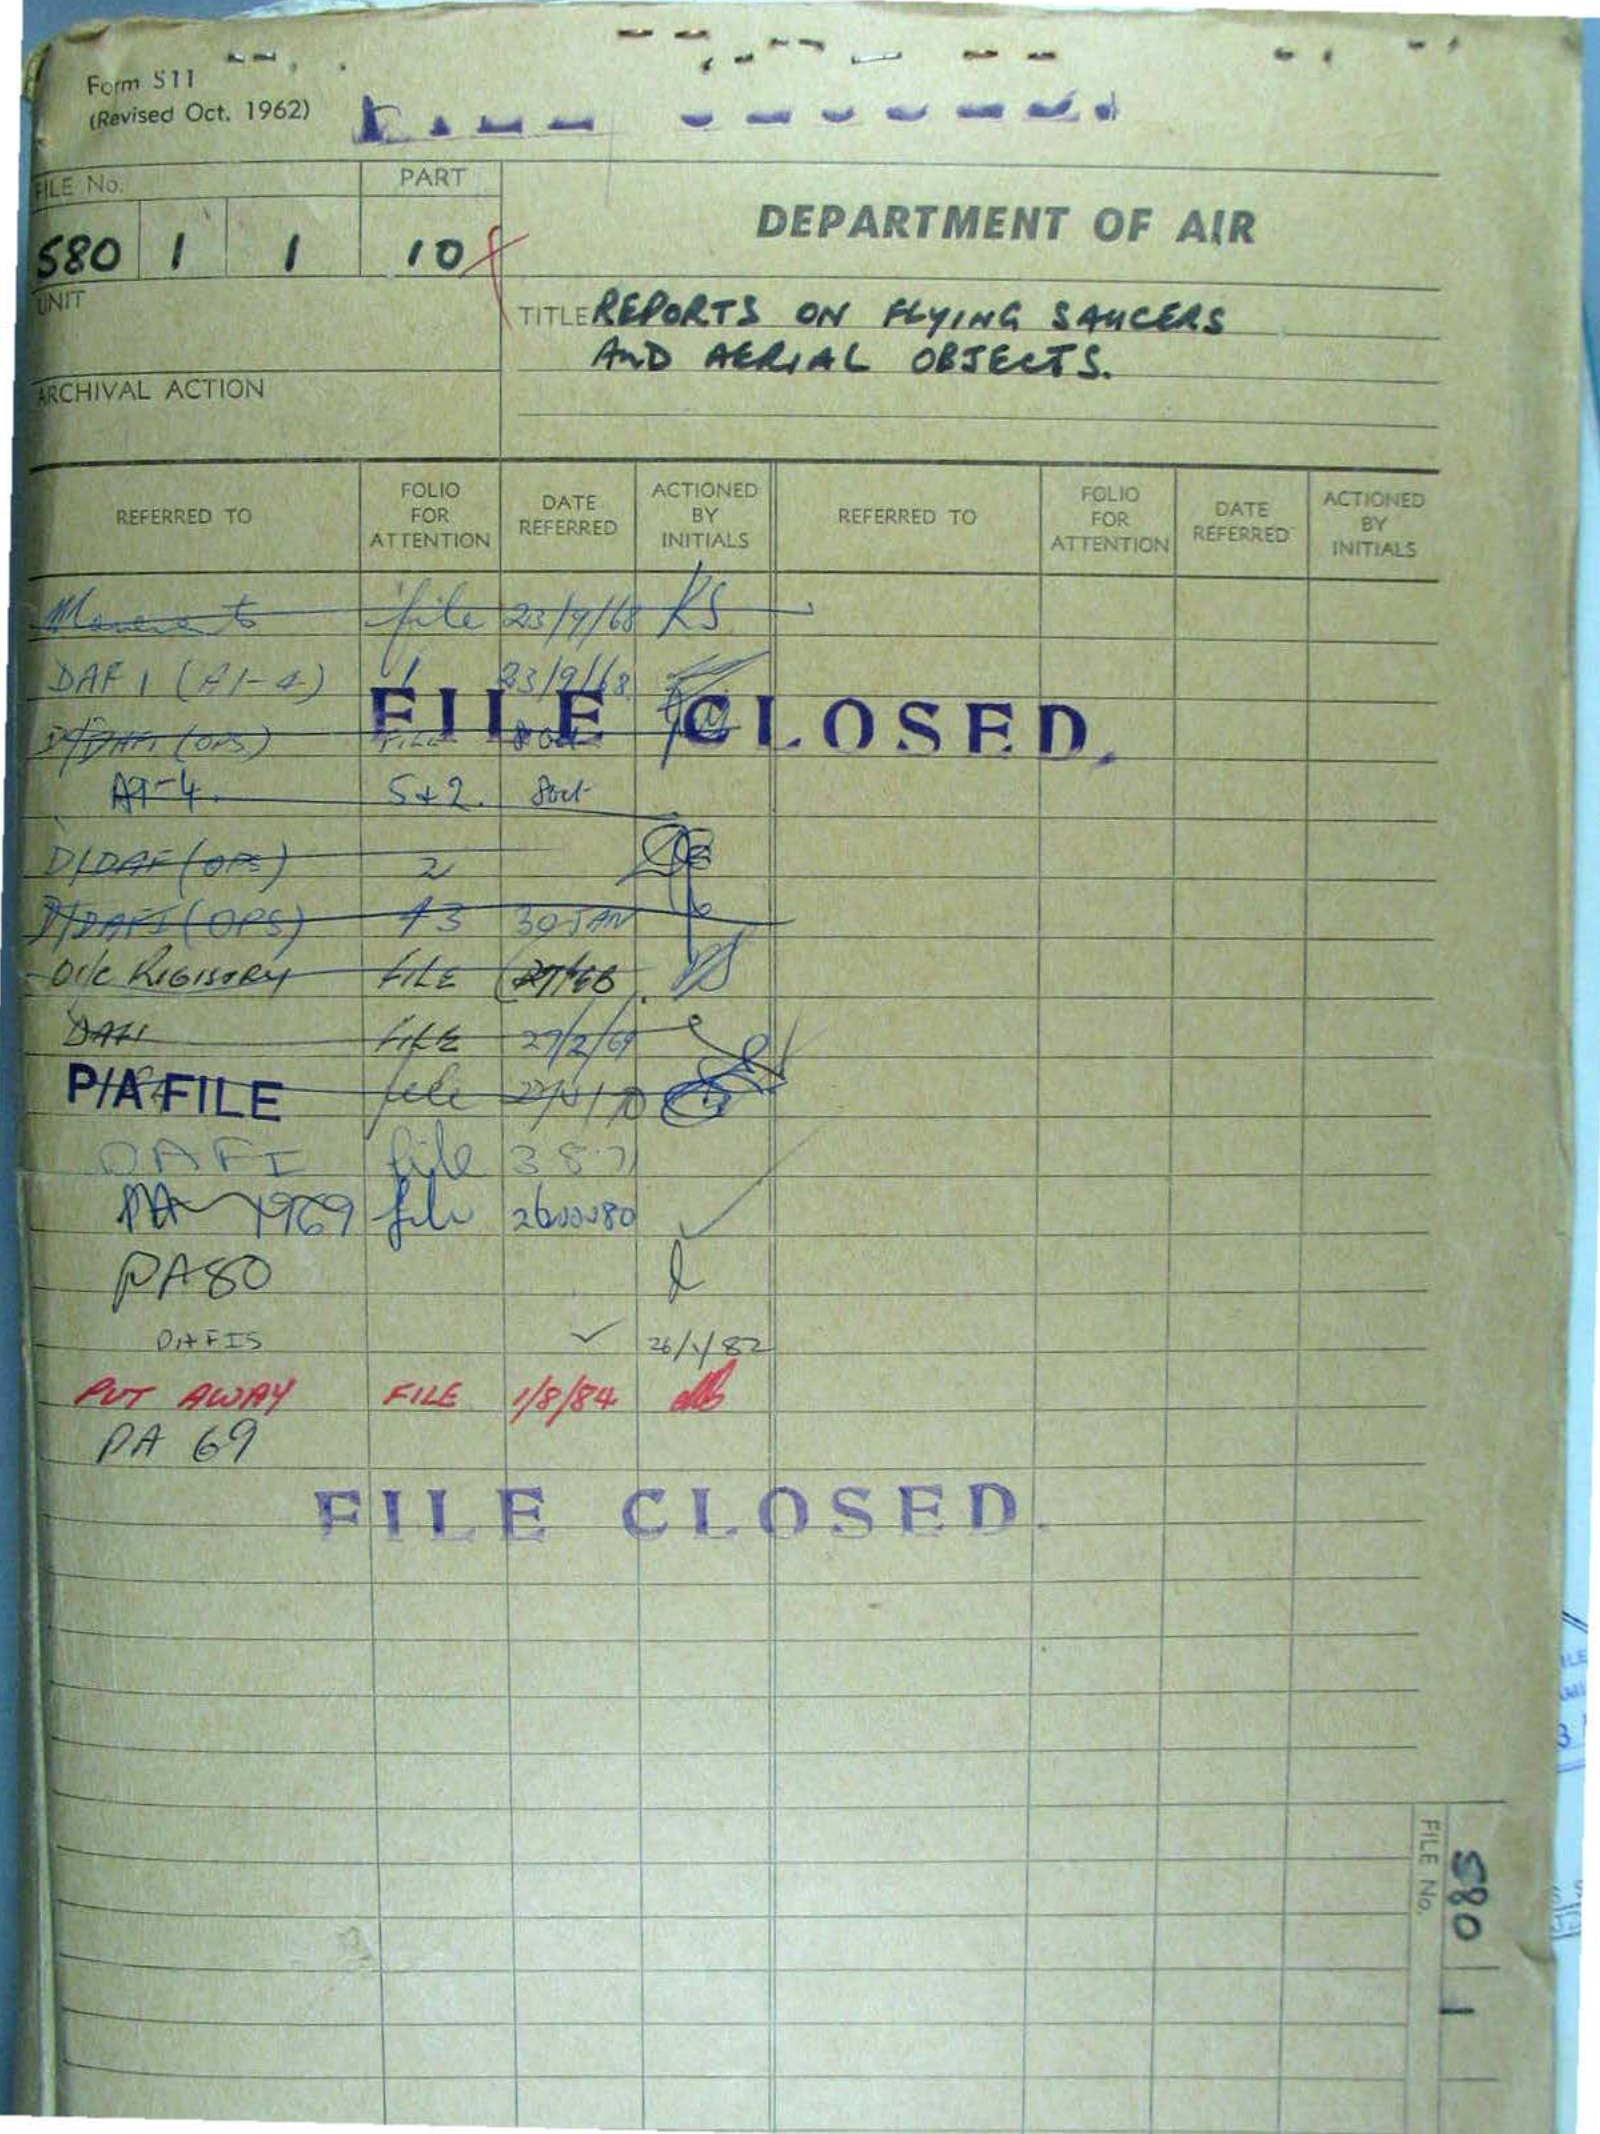 Form 511
(Revised Oct. 1962)
FILE No.
PART
580 1 1 10
DEPARTMENT OF AIR
UNIT
TITLE REPORTS ON FLYING SAUCERS
AND AERIAL OBJECTS.
ARCHIVAL ACTION
REFERRED TO FOLIO FOR ATTENTION DATE REFERRED ACTIONED BY INITIALS REFERRED TO FOLIO FOR ATTENTION DATE REFERRED ACTIONED BY INITIALS
file 23/9/68 KS
DAF 1 (A1-4) 1 23/9/68
FILE CLOSED.
D/DAFI (OPS) FILE 8 Oct
AI-4. 5+2. 8 Oct
D/DAF (OPS) 2
D/DAFI (OPS) 43 30 JAN
O i/c REGISTRY FILE
DAFI FILE 27/2/69
P/A FILE file
DAFI file 3 8 71
PA 1969 file
PA80
DAFIS ✓ 26/1/82
PUT AWAY FILE 1/8/84
PA 69
FILE CLOSED.
FILE No.
580 1